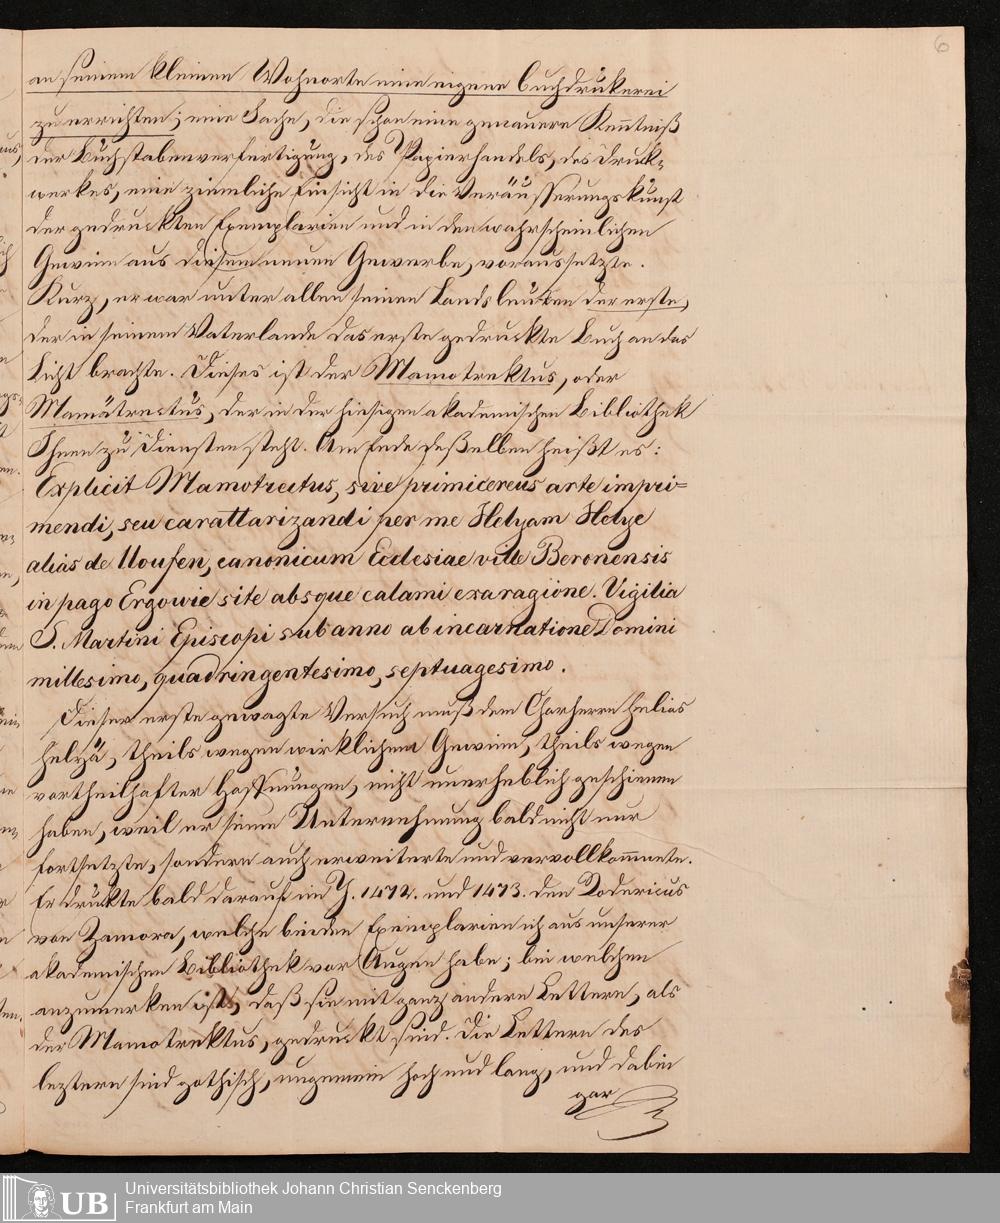 6
an seinem kleinen Wohnorte eine eigene Buchdrukerei
zu errichten; eine Sache, die schon eine genauere Kenntniß
der Buchstabenverfertigung, des Papierhandels, des Druk-
werkes, eine ziemliche Einsicht in die Veräusserungskunst
der gedruckten Exemplarien und in den wahrscheinlichen
Gewinn aus diesem neuen Gewerbe, voraussetzte.
Kurz, er war unter allen seinen Landsleuten der erste,
der in seinem Vaterlande das erste gedruckte Buch an das
Licht brachte. Dieses ist der Mamotrektus, oder
Mamätrectus, der in der hiesigen akademischen Bibliothek
Ihnen zu Diensten steht. Am Ende deßelben heißt es:
Explicit Mamotrectus, sive primicereus arte impri=
mendi, seu carattarizandi per me Helyam Helye
alias de Lloufen, canonicum Ecclesiae ville Beronensis
in pago Ergowie site absque calami exaragione. Vigilia
S. Martini Episcopi sub anno ab incarnatione Domini
millesimo, quadringentesimo, septuagesimo.
Dieser erste gewagte Versuch muß dem Chorherrn Helias
Helyä, theils wegen wirklichem Gewinn, theils wegen
vortheilhafter Hoffnungen, nicht unerheblich geschienen
haben, weil er seine Unternehmung bald nicht nur
fortsetzte, sondern auch erweiterte und vervollkommnete.
Er drukte bald darauf im J. 1472. und 1473. den Rodericus
von Zamora, welche beiden Exemplarien ich aus unserer
akademischen Bibliothek vor Augen habe; bei welchen
anzumerken ist, daß sie mit ganz andern Lettern, als
der Mamotrektus, gedruckt sind. Die Lettern des
leztern sind gothisch, ungemein hoch und lang, und dabei
gar
UB
Universitätsbibliothek Johann Christian Senckenberg
Frankfurt am Main